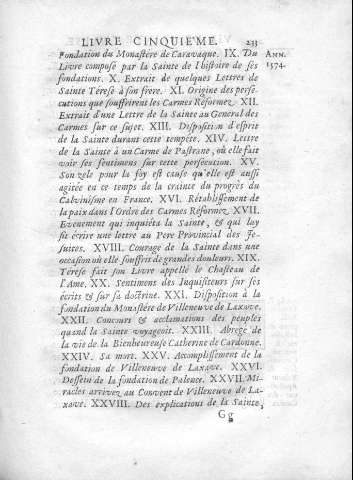 LIVRE CINQUIE'ME. 233
Fondation du Monastére de Caravaque. IX. Du ANN.
Livre composé par la Sainte de l'histoire de ses 1574.
fondations. X. Extrait de quelques Lettres de
Sainte Térese à son frere. XI. Origine des persé-
cutions que souffrirent les Carmes Réformez. XII.
Extrait d'une Lettre de la Sainte au General des
Carmes sur ce sujet. XIII. Disposition d'esprit
de la Sainte durant cette tempête. XIV. Lettre
de la Sainte à un Carme de Pastrane, où elle fait
voir ses sentimens sur cette persécution. XV.
Son zele pour la foy est cause qu'elle est aussi
agitée en ce temps de la crainte du progrés du
Calvinisme en France. XVI. Rétablissement de
la paix dans l'Ordre des Carmes Réformez. XVII.
Evenement qui inquiéta la Sainte, & qui luy
fit écrire une lettre au Pere Provincial des Je-
suites. XVIII. Courage de la Sainte dans une
occasion où elle souffrit de grandes douleurs. XIX.
Térese fait son Livre appellé le Chasteau de
l'Ame. XX. Sentimens des Inquisiteurs sur ses
écrits & sur sa doctrine. XXI. Disposition à la
fondation du Monastére de Villeneuve de Laxave.
XXII. Concours & acclamations des peuples
quand la Sainte voyageoit. XXIII. Abregé de
la vie de la Bienheureuse Catherine de Cardonne.
XXIV. Sa mort. XXV. Accomplissement de la
fondation de Villeneuve de Laxave. XXVI.
Dessein de la fondation de Palence. XXVII. Mi-
racles arrivez au Convent de Villeneuve de La-
xave. XXVIII. Des explications de la Sainte,
Gg